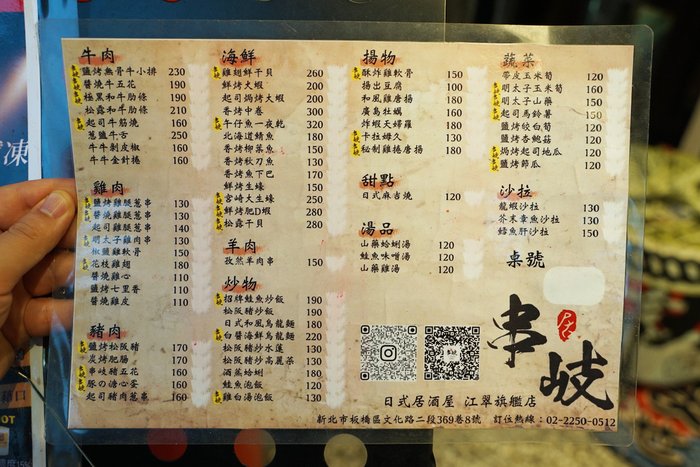 牛肉
鹽烤無骨牛小排 230
醬燒牛五花 190
極黑和牛肋條 190
松露和牛肋條 210
起司牛筋燒 160
蔥鹽牛舌 250
牛牛剝皮椒 160
牛牛金針捲 160
雞肉
鹽烤雞腿蔥串 130
醬燒雞腿蔥串 130
起司雞腿蔥串 130
明太子雞肉串 140
椒鹽雞軟骨 150
花枝雞翅 180
醬燒雞心 110
鹽烤七里香 110
醬燒雞皮 110
豬肉
鹽烤松阪豬 170
炭烤肥腸 170
串岐豬五花 160
豚の溏心蛋 160
起司豬肉蔥串 160
海鮮
雞翅鮮干貝 260
鮮烤大蝦 200
起司焗烤大蝦 200
香烤中卷 300
午仔魚一夜乾 320
北海道鯖魚 180
香烤柳葉魚 150
香烤秋刀魚 130
香烤魚下巴 170
鮮烤生蠔 150
宮崎大生蠔 250
鮮烤肥D蝦 280
松露干貝 280
羊肉
孜然羊肉串 150
炒物
招牌鮭魚炒飯 190
松阪豬炒飯 190
日式和風烏龍麵 180
白醬海鮮烏龍麵 220
松阪豬炒水蓮 130
松阪豬炒高麗菜 130
酒蒸蛤蜊 180
鮭魚泡飯 120
雞白湯泡飯 150
揚物
酥炸雞軟骨 150
揚出豆腐 100
和風雞唐揚 180
廣島牡蠣 160
炸蝦天婦羅 180
卡拉姆久 130
秘制雞捲唐揚 180
甜點
日式麻吉燒 120
湯品
山藥蛤蜊湯 120
鮭魚味噌湯 120
山藥雞湯 120
蔬菜
帶皮玉米筍 120
明太子玉米筍 160
明太子山藥 150
起司馬鈴薯 150
鹽烤筊白筍 120
鹽烤杏鮑菇 120
焗烤起司地瓜 120
鹽烤節瓜 120
沙拉
龍蝦沙拉 130
芥末章魚沙拉 130
鱈魚肝沙拉 150
桌號
串岐
居
日式居酒屋 江翠旗艦店
新北市板橋區文化路二段369巷8號 訂位熱線：02-2250-0512